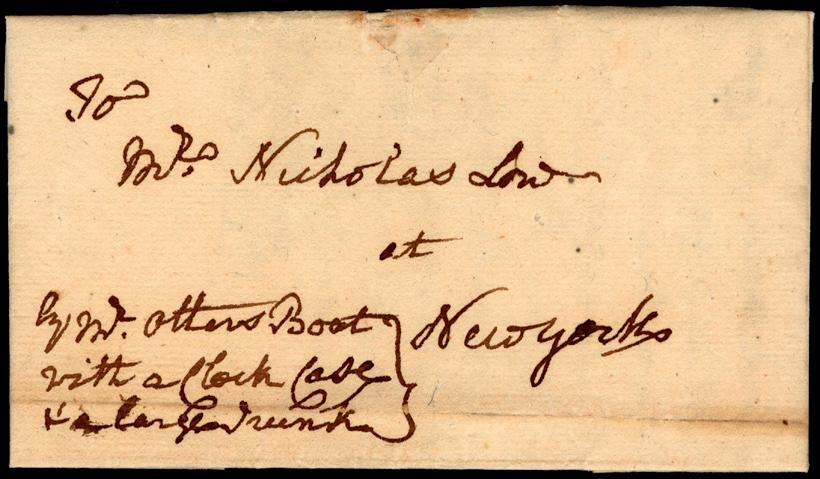 To
Mr. Nicholas Low
at
New York
By Mr. Otters Boat
with a Clock Case
& a large Trunk